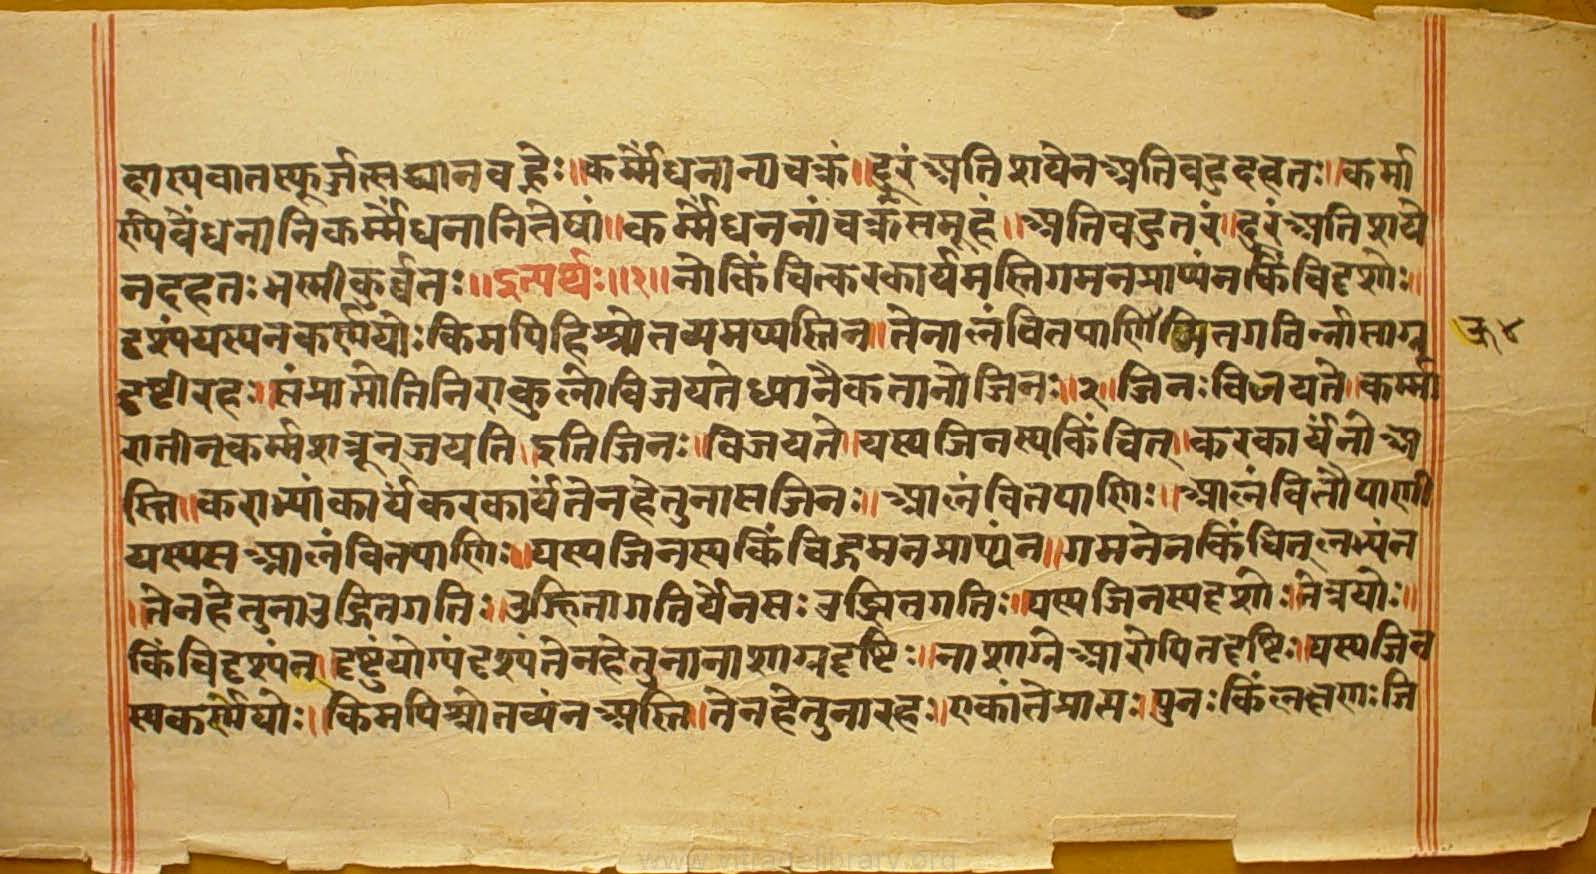 दास्यवातस्फूर्ज्जत्सद्ध्यानवह्नेः॥कर्म्मैधनान्यचक्रं॥दूरंअतिशयेनअतिबहुदहतः॥कर्मा
ण्येवैंधनानिकर्म्मैधनानितेषां॥कर्म्मैधननांचक्रंसमूहं॥अतिबहुतरं॥दूरंअतिशये
नदहतःभस्मीकुर्व्वतः॥इत्यर्थः॥१॥नोकिंचित्करकार्यमस्तिगमनप्राप्यंनकिंचिदृशोः॥
दृश्यंयस्यनकर्ण्णयोःकिमपिहिश्रोतव्यमप्यस्तिन॥तेनालंवितपाणिरुज्झितगतिर्न्नासाग्र
दृष्टीरहः॥संप्राप्तोतिनिराकुलोविजयतेध्यानैकतानोजिनः॥२॥जिनःविजयते॥कर्म्मा
रातीन्कर्म्मशत्रून्जयतिइतिजिनः॥विजयते॥यस्यजिनस्यकिंचित्॥करकार्यंनोअ
स्ति॥कराभ्यांकार्यंकरकार्यंतेनहेतुनासजिनः॥आलंवितपाणिः॥आलंवितौपाणी
यस्यसआलंवितपाणिः॥यस्यजिनस्यकिंचिद्गमनप्राप्यंन॥गमनेनकिंचित्लभ्यंन
॥तेनहेतुनाउज्झितगतिः॥उज्झितागतिर्येनसःउज्झितगतिः॥यस्यजिनस्यदृशोःनेत्रयोः॥
किंचिदृश्यंन॥दृष्टुंयोग्यंदृश्यंतेनहेतुनानाशाग्रदृष्टिः॥नाशाग्रेआरोपितदृष्टिः॥यस्यजिन
स्यकर्ण्णयोः॥किमपिश्रोतव्यंनअस्ति॥तेनहेतुनारहः॥एकांतेप्राप्तःपुनःकिंलक्षणःजि
www.vitragelibrary.org